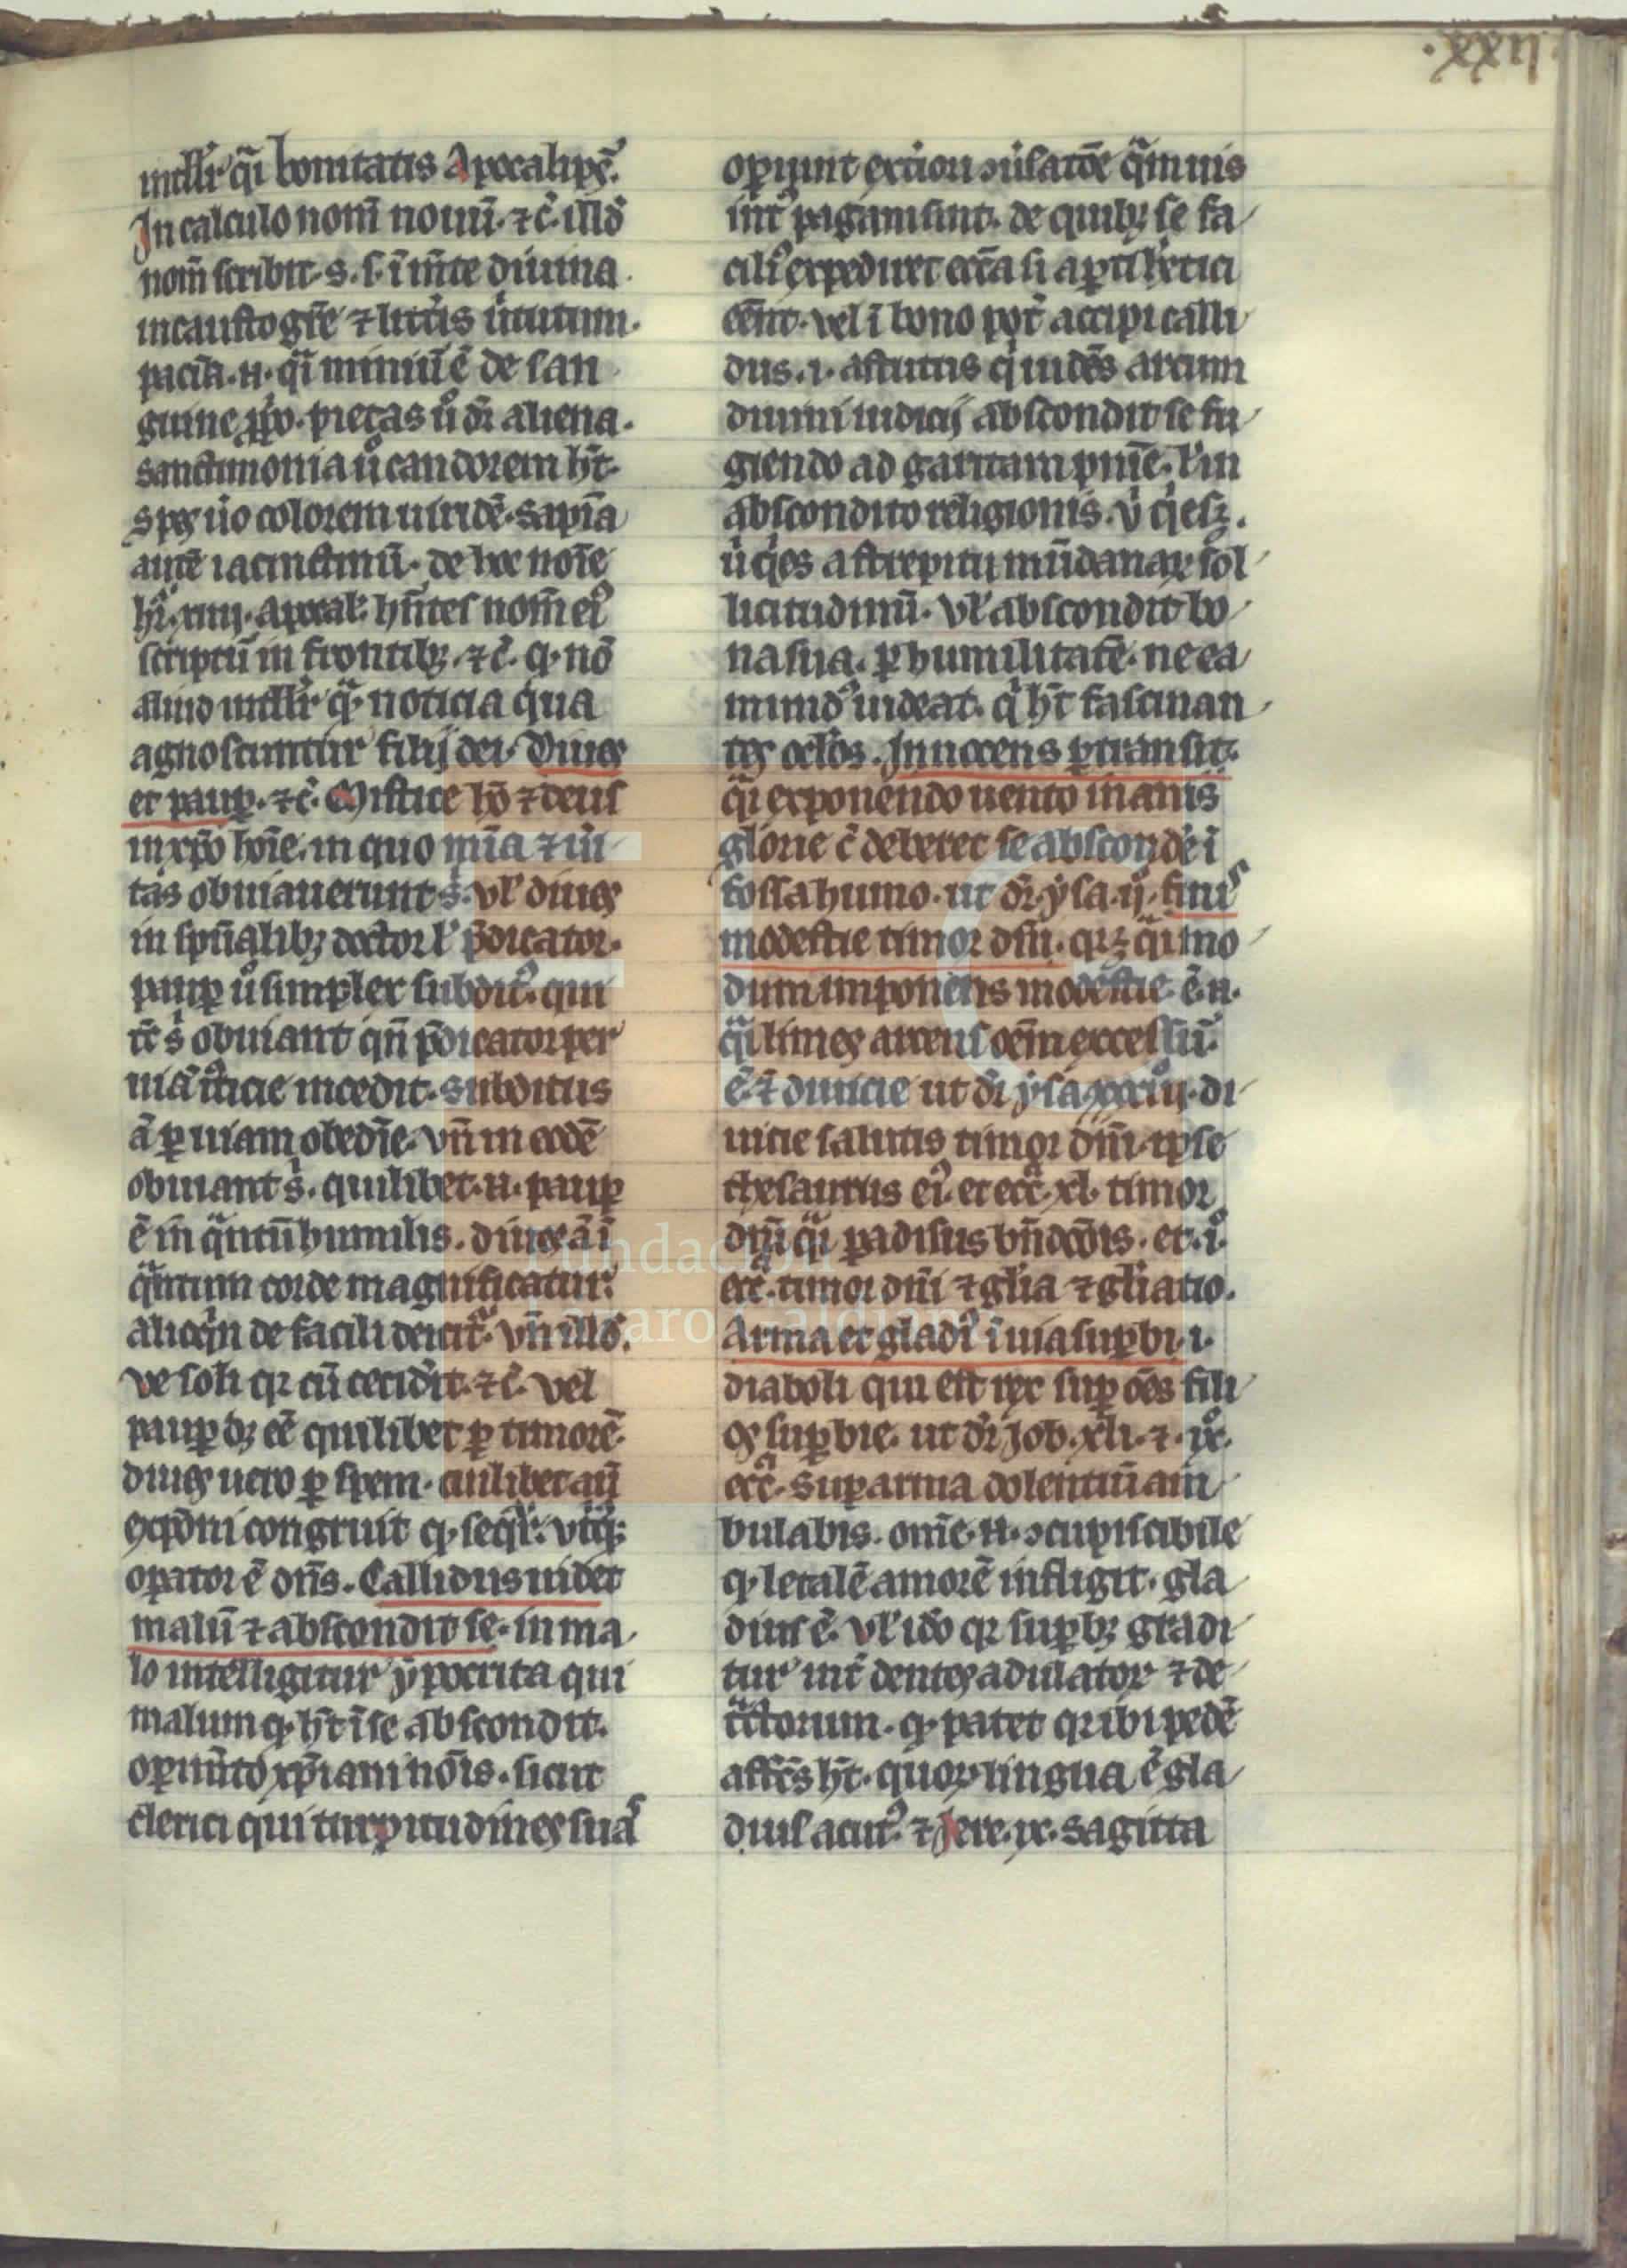 ·xxij·
intllr̄ qͣi bonitatis Apocalips̄.
In calculo nom̄ nouū. ⁊c̄. illđ
nom̄ scribit. s. s. ī m̄te diuina.
incausto gr̄e ⁊ lr̄is ū̓tutum.
pacīa .n. qͣi miniū ē de san
guine ꝓp̓o. pietas ů dr̄ aliena.
sanctimonia ů candorem hт̄.
spes ůo colorem uiridē. sapīa
autē iacinctinū. de hoc noīe
hr̄. xiiij. apocal. hn̄tes nom̄ ei᷒
scriptū in frontibꝫ. ⁊c̄. ꝙ nō
aliud intllr̄ qͣ noticia qua
agnoscuntur filij dei. Diues
et paup̱. ⁊c̄. Mistice hō ⁊ deus
in xp̄o hoīe. in quo mīa ⁊ ūi
tas obuiauerunt s̓. vl̓ diues
in spūalibꝫ doctor l̓ p̄dicator.
paup̱ ů simplex subdit᷒. qui
tc̄ s̓ obuiant qn̄ p̄dicator per
uiā iͧsticie incedit. subditus
ā ꝑ uiam obediē. vn̄ in eodē
obuiant s̓. quilibet .n. paup̱
ē in qͣntū humilis. diues ā ī
qͣntum corde magnificatur.
alioqͥn de facili deicitͬ. vn̄ illđ.
ve soli qꝛ cū ceciđit. ⁊c̄. vel
paup̱ dꝫ eē quilibet ꝑ timorē.
diues uero ꝑ spem. cuilibet aū
exp̄oni congruit ꝙ seqr̄. vtͥqꝫ
oꝑator ē dn̄s. Callidus uidet
malū ⁊ abscondit se. in ma
lo intelligitur ẏpocrita qui
malum ꝙ hт̄ ī se abscondit.
oꝑim̄to xp̄iani noīs. sicut
clerici qui turpitudines suas
oꝑiunt exc̓iori ɔůsatōe qͣmuis
int᷒ pagani sint. de quibꝫ se fa
cili᷒ expediret ecc̄a si aꝑti hr̄tici
eēnt. vel ī bono pot̄ accipi calli
dus .i. astutus qͥ uidēs arcum
diuini iudicij abscondit se fu
giendo ad garitam pn̄ie. l̓ in
abscondito religionis. v̓ qͥescꝫ.
ů qͥes a strepitu mūdanaꝝ sol
licitudinū. vl̓ abscondit bo
na sua. ꝑ humilitatē. ne ea
mund᷒ uideat. qͥ hт̄ fascinan
tes oc̄los. Innocens ꝑtransit.
qͣi exponendo uento inanis
glorie c̄ deberet se absconđe ī
fossa humo. ut dr̄ ẏsa. ij. finis
modestie timor dn̄i. qꝛꝫ qͣi mo
dum imponens modestie. ē .n.
qͣi limes arcens oēm excessū.
ē ⁊ diuicie ut dr̄ ẏsa. xxxiij. di
uicie salutis timor dn̄i. ip̱se
thesaurus ei᷒. et ecc̄. xl. timor
dn̄i qͣi ꝑadisus bn̄dcōis. et .i.
ecc̄. timor dn̄i ⁊ gl̓ia ⁊ gl̓iatio.
Arma et gladi᷒ ī uia suꝑbi .i.
diaboli qui est rex suꝑ oēs fili
os suꝑbie. ut dr̄ Job. xli. ⁊ .ix.
ecc̄. Suꝑ arma dolentiū am
bulabis. omīe .n. ɔcupiscibile
ꝙ letalē amorē infligit. gla
dius ē. vl̓ idō qꝛ suꝑbꝫ gradi
tur int̓ dentes adulatoꝝ ⁊ de
tͣctorum. ꝙ patet qꝛ ibi pedē
affc̄s hт̄. quoꝝ lingua ē gla
dius acut᷒. ⁊ Jere. ix. sagitta
Fundación
Lázaro Galdiano